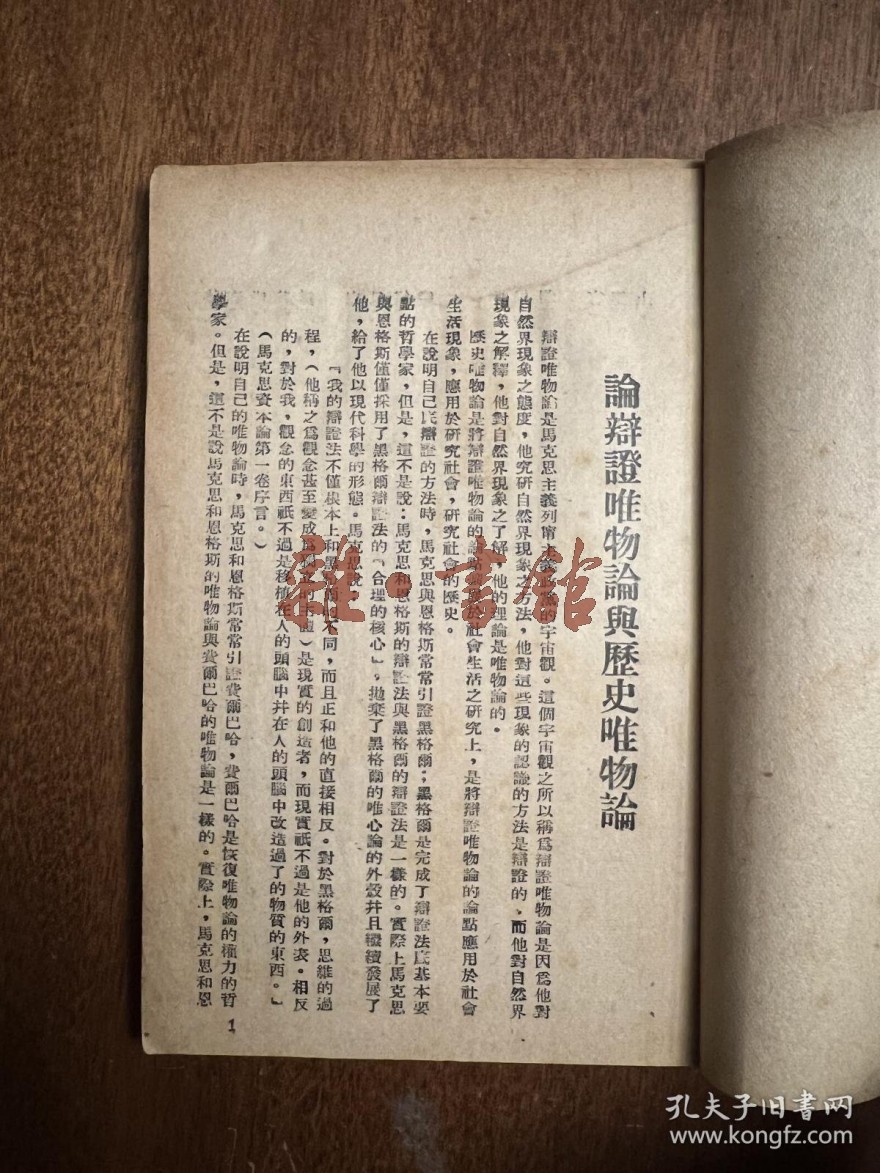 論辯證唯物論與歷史唯物論
辯證唯物論是馬克思主義列甯主義政黨的宇宙觀。這個宇宙觀之所以稱爲辯證唯物論是因爲他對
自然界現象之態度,他究研自然界現象之方法,他對這些現象的認識的方法是辯證的,而他對自然界
現象之解釋,他對自然界現象之了解,他的理論是唯物論的。
歷史唯物論是將辯證唯物論的論點 於社會生活之研究上,是將辯證唯物論的論點應用於社會
生活現象,應用於研究社會,研究社會的歷史。
在說明自己底辯證的方法時,馬克思與恩格斯常常引證黑格爾;黑格爾是完成了辯證法底基本要
點的哲學家,但是,這不是說:馬克思和恩格斯的辯證法與黑格爾的辯證法是一樣的。實際上馬克思
與恩格斯僅僅採用了黑格爾辯證法的「合理的核心」,拋棄了黑格爾的唯心論的外殼并且繼續發展了
他,給了他以現代科學的形態。馬克思說:
『我的辯證法不僅根本上和黑格爾的不同,而且正和他的直接相反。對於黑格爾,思維的過
程,(他稱之爲觀念甚至變成 的主體)是現實的創造者,而現實祇不過是他的外表。相反
的,對於我,觀念的東西祇不過是移植在人的頭腦中并在人的頭腦中改造過了的物質的東西。』
(馬克思資本論第一卷序言。)
在說明自己的唯物論時,馬克思和恩格斯常常引證費爾巴哈,費爾巴哈是恢復唯物論的權力的哲
學家。但是,這不是說馬克思和恩格斯的唯物論與費爾巴哈的唯物論是一樣的。實際上,馬克思和恩
1
雜·書館
孔夫子旧书网
www.kongfz.com